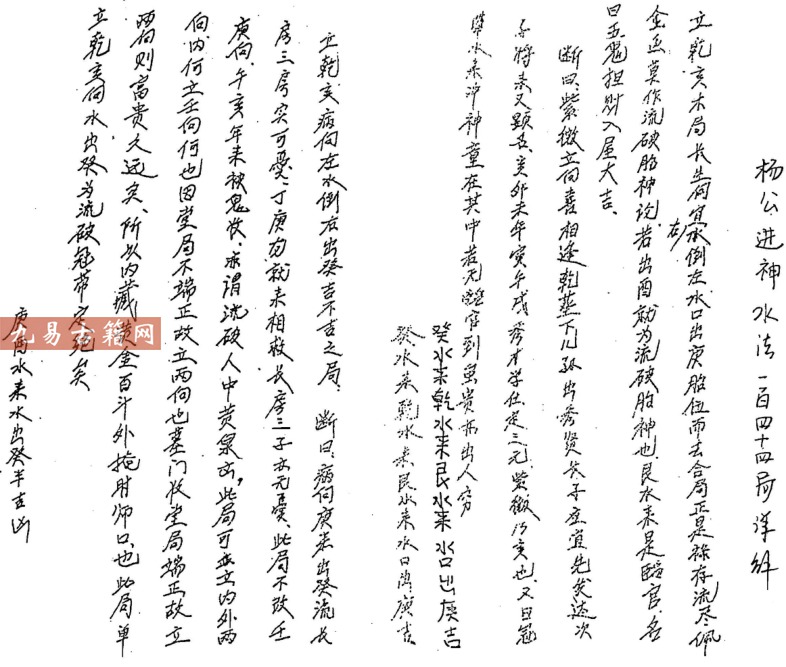 杨公进神水法一百四十四局详解
立乾亥木局长生向宜右水倒左水口出庚胎位而去合局正是禄存流尽佩
金鱼莫作流破胎神说若出酉就为流破胎神也艮水来是临官名
曰五鬼担财入屋大吉、
断曰、紫微立向喜相逢乾葬下儿孙出秀贤长子应宜先发达次
子将来又显名、亥卯未年寅午戌秀才学仕是三元、紫微即亥也、又曰冠
带水来冲神童在其中若无临官到虽贵亦出人穷
癸水来乾水来艮水来水口出庚吉
癸水来乾水来艮水来水口出庚吉
立乾亥病向左水倒右出癸吉不吉之局、断曰、病向庚来出癸流长
房三房实可忧、丁庚方就来相救长房三子亦无忧、此局不改壬
庚向、午亥年来被鬼收、求谓流破人中黄泉文，此局可立内外两
向内何立壬向何也因堂局不端正故立两向也墓门收堂局端正故立
两向则富贵久远矣、所以内藏黄金百斗外掩时师口也此局单
立乾亥向水出癸为流破冠带定绝矣
庚酉水来水出癸半吉凶
九易古籍网